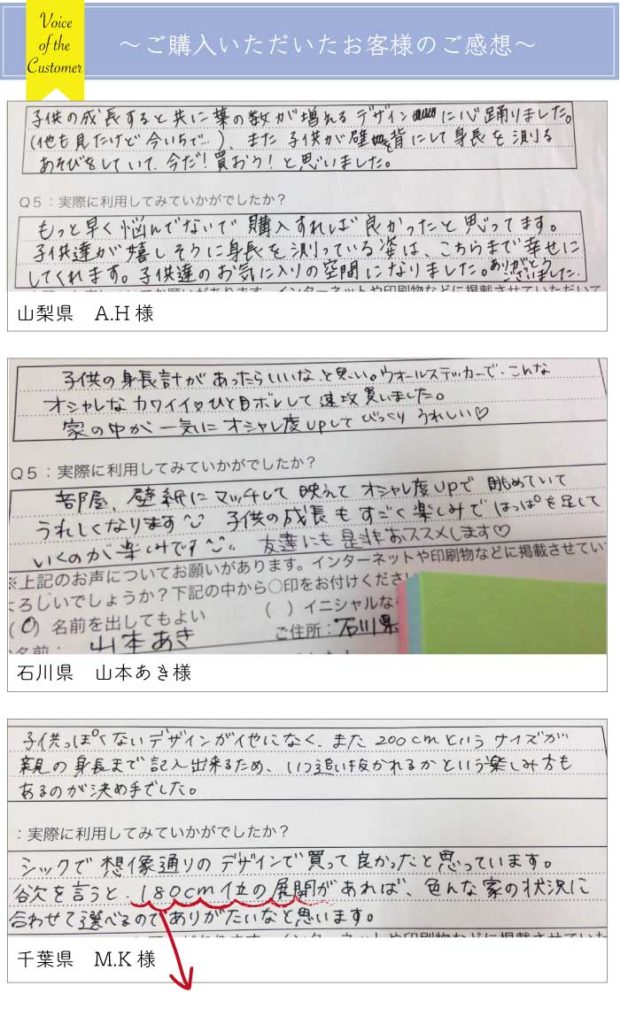 Voice
of the
Customer
～ご購入いただいたお客様のご感想～
子供の成長すると共に葉の数が増えるデザインに心踊りました。
(他も見たけど今いちで…)、また子供が壁を背にして身長を測る
あそびをしていて、今だ！買おう！と思いました。
Q5：実際に利用してみていかがでしたか？
もっと早く悩んでないで購入すれば良かったと思ってます。
子供達が嬉しそうに身長を測っている姿は、こちらまで幸せに
してくれます。子供達のお気に入りの空間になりました。ありがとうございました。
山梨県 A.H様
子供の身長計があったらいいなと思い。ウォールステッカーで、こんな
オシャレなカワイイ♡ひと目ボレして速攻買いました。
家の中が一気にオシャレ度upしてびっくりうれしい♡
Q5：実際に利用してみていかがでしたか？
部屋、壁紙にマッチして映えてオシャレ度upで眺めていて
うれしくなります 子供の成長もすごく楽しみではっぱを足して
いくのが楽しみです 友達にも是非おススメします♡
※上記のお声についてお願いがあります。インターネットや印刷物などに掲載させてい
よろしいでしょうか？下記の中から○印をお付けくださ
(○) 名前を出してもよい ( ) イニシャルな
名前： 山本あき ご住所：石川県
石川県 山本あき様
子供っぽくないデザインがイヤになく、また200cmというサイズが
親の身長まで記入出来るため、いつ追い抜かれるかという楽しみ方も
あるのが決め手でした。
：実際に利用してみていかがでしたか？
シックで想像通りのデザインで買って良かったと思っています。
欲を言うと、180cm位の展開があれば、色んな家の状況に
合わせて選べるのでありがたいなと思います。
千葉県 M.K様